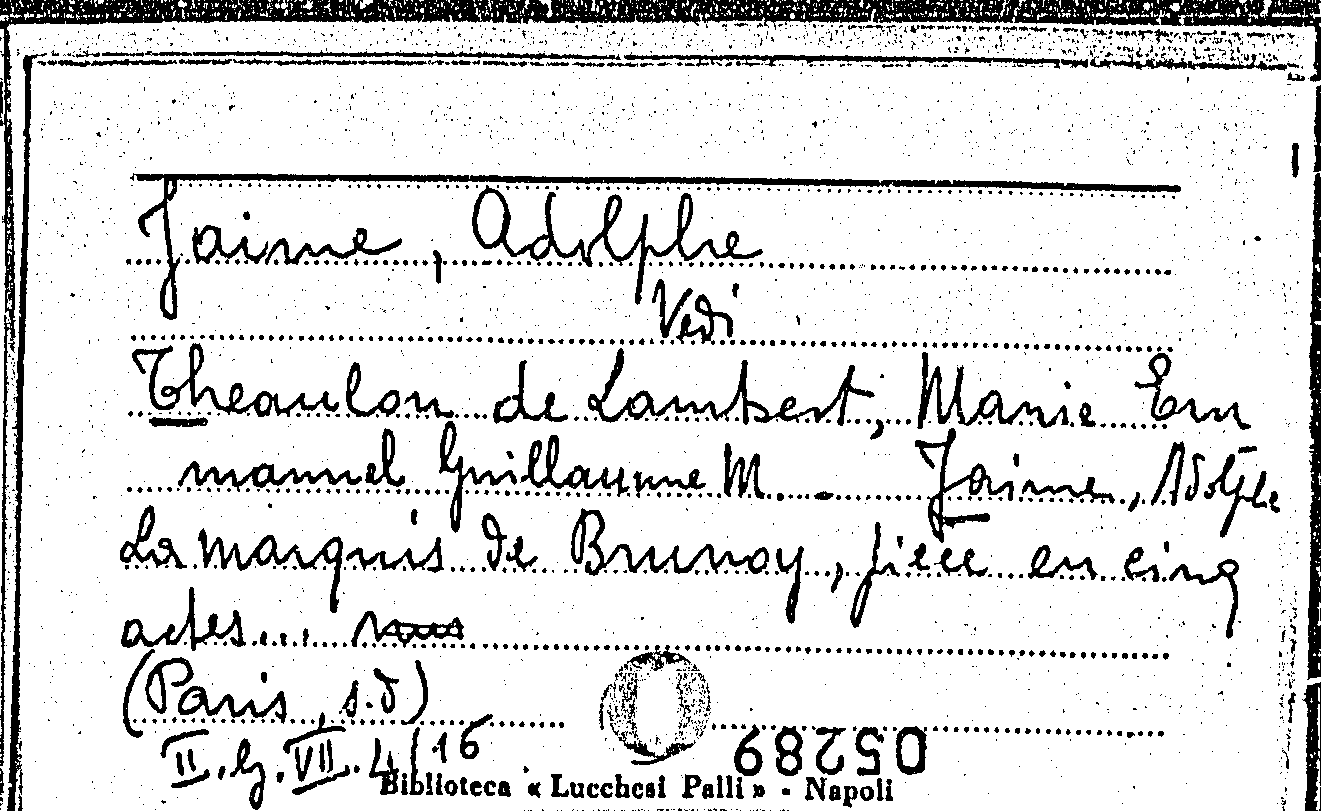 Jaime, Adolphe
Vedi
Theaulon de Lambert, Marie Em
manuel Guillaume M. - Jaime, Adolphe
La marquis de Brunoy, pièce en cinq
actes...
(Paris, s.d)
II. G. VII. 4/16
05289
Biblioteca « Lucchesi Palli » - Napoli